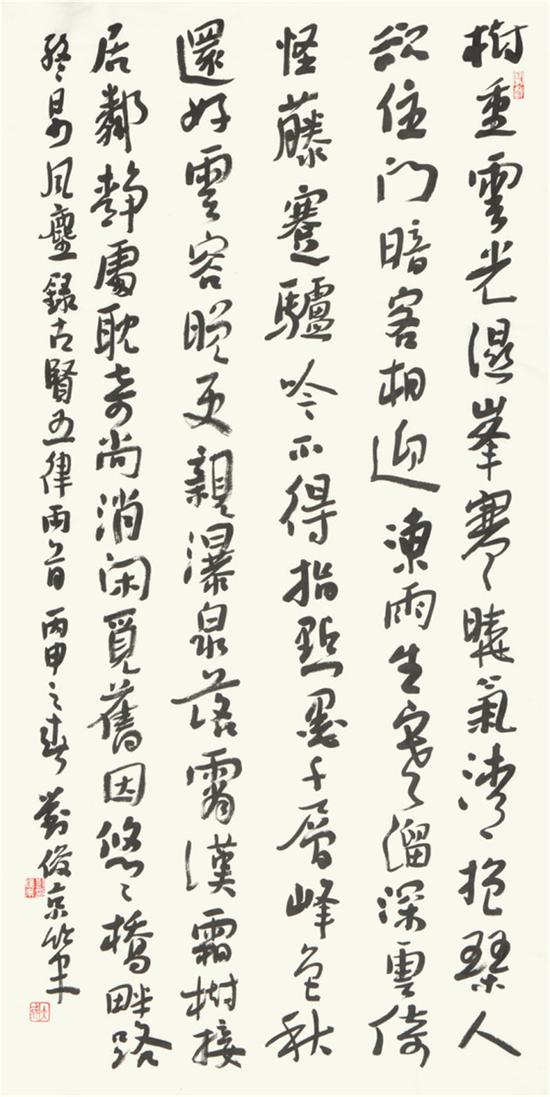 樹重雲光濕峯寒曉氣清抱琴人
欲住門暗客相迎凍雨生寒溜深雲倚
怪藤蹇驢吟不得指點墨千層峰色秋
還好雲容晚更親瀑泉落霄漢霜樹接
居鄰靜處耽奇尚消閑覓舊因悠々橋畔路
終日少風塵錄古賢五律兩首 丙申之春 劉俊京筆